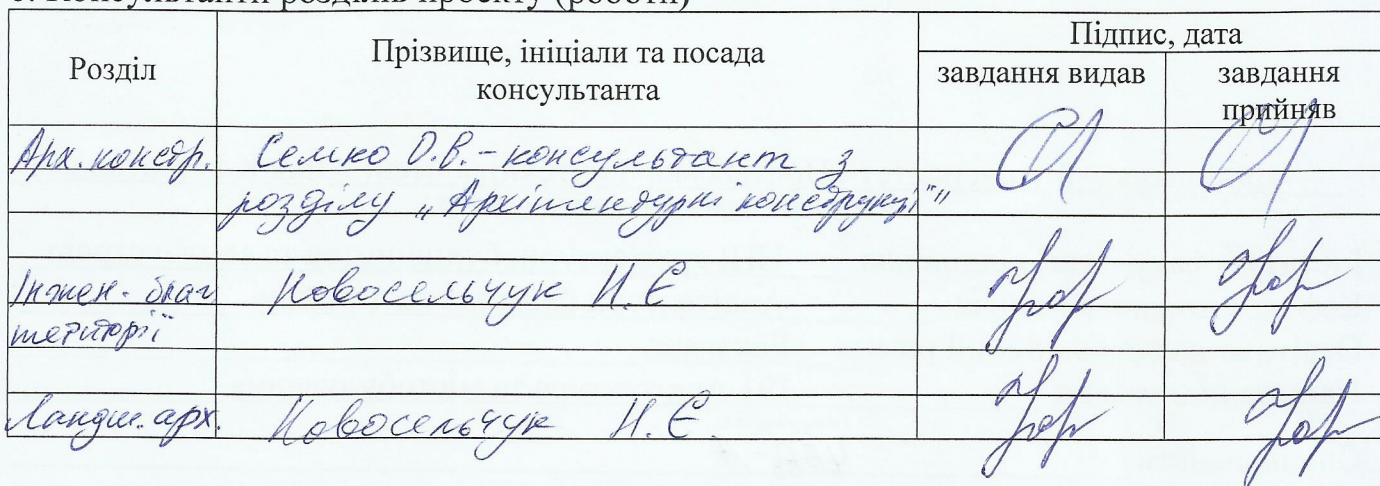 6. Консультанти розділів проекту (роботи)
Розділ
Прізвище, ініціали та посада
консультанта
Підпис, дата
завдання видав
завдання
прийняв
Арх. констр. Семко О.В. - консультант з
розділу „Архітектурні конструкції"
Інжен - благ Новосельчук Н.Є
території
Ландш. арх. Новосельчук Н.Є.